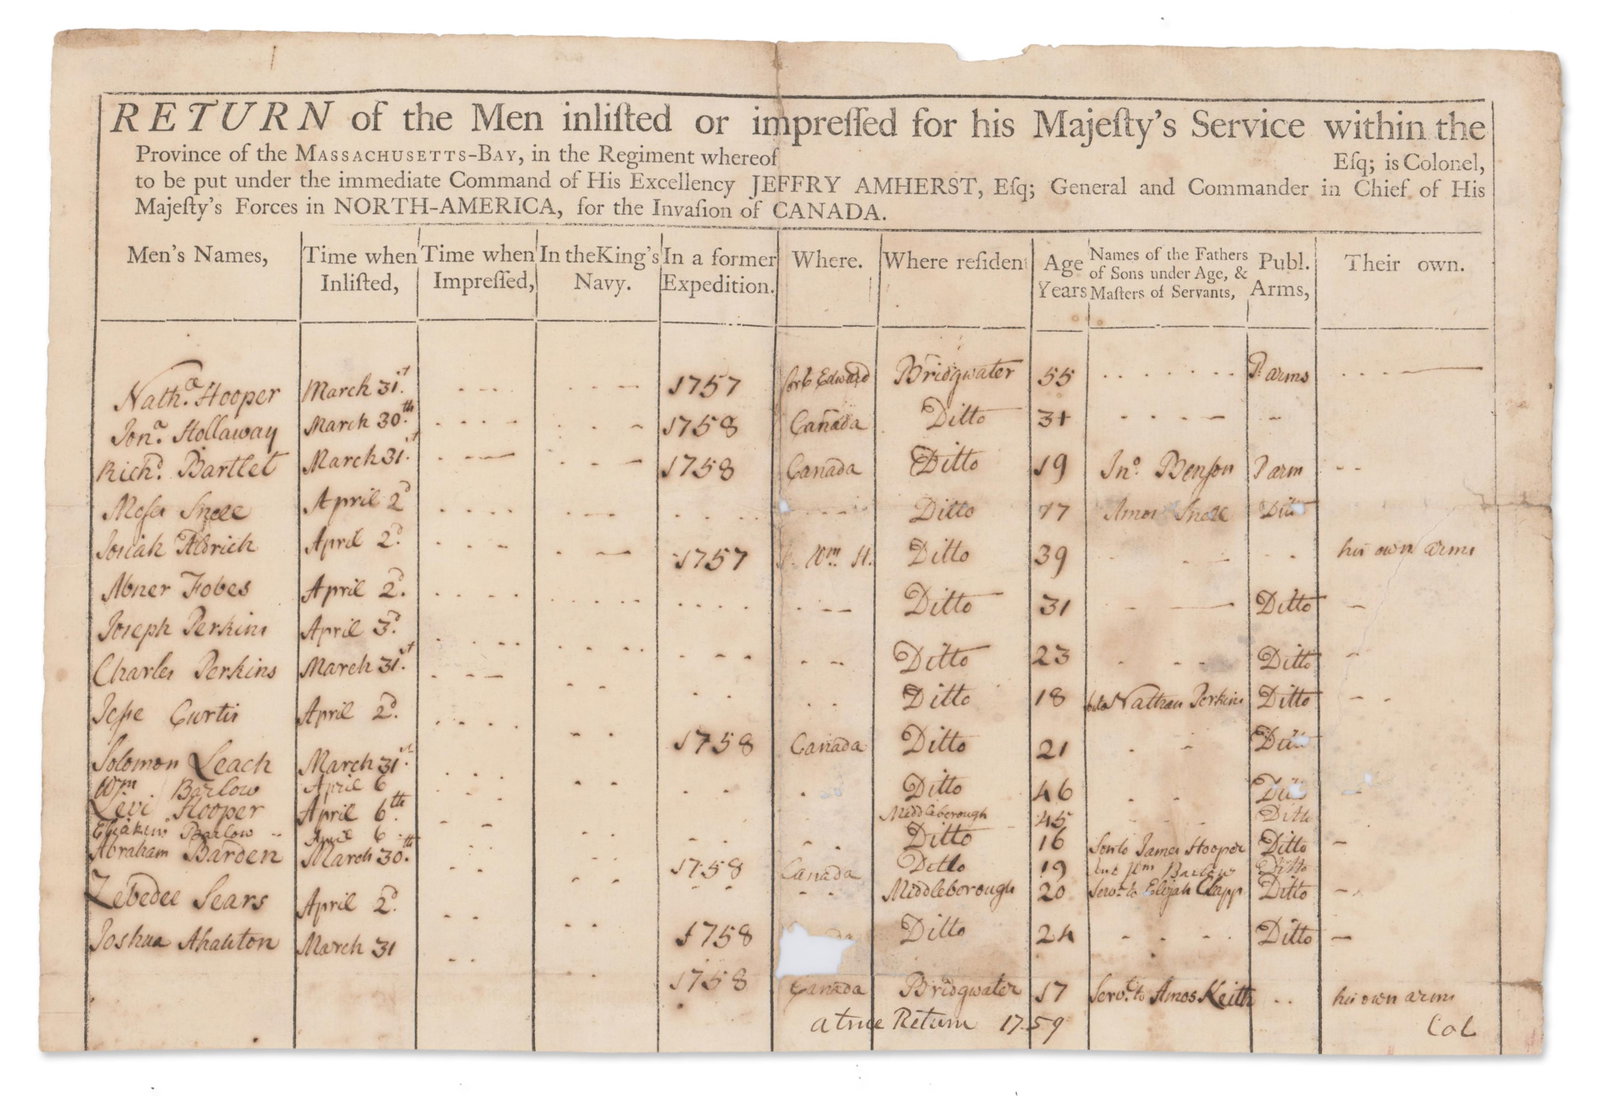 RETURN of the Men inliſted or impreſſed for his Majeſty's Service within the
Province of the MASSACHUSETTS-BAY, in the Regiment whereof Eſq; is Colonel,
to be put under the immediate Command of His Excellency JEFFRY AMHERST, Eſq; General and Commander in Chief of His
Majeſty's Forces in NORTH-AMERICA, for the Invaſion of CANADA.
Men's Names, Time when Inliſted, Time when Impreſſed, In the King's Navy. In a former Expedition. Where. Where reſident Age Years Names of the Fathers of Sons under Age, & Maſters of Servants, Publ. Arms, Their own.
Nath.a Hooper March 31.st 1757 Edward Bridgwater 55 P arms
Jon.a Hollaway March 30.th 1758 Canada Ditto 31
Rich.d Bartlet March 31.st 1758 Canada Ditto 19 Jn.o Benson P arm
Moses Snell April 2.d Ditto 17 Amos Snell Ditto
Josiah Aldrich April 2.d 1757 F. Wm. H. Ditto 39 his own arms
Abner Fobes April 2.d Ditto 31 Ditto
Joseph Perkins April 3.d Ditto 23 Ditto
Charles Perkins March 31.st Ditto 18 Nathan Perkins Ditto
Jeſse Curtis April 2.d 1758 Canada Ditto 21 Ditto
Solomon Leach March 31.st Ditto 46 Ditto
Wm Barlow April 6 Middleborough 45 Ditto
Levi Hooper April 6.th Ditto 16 Son to James Hooper Ditto
Eliakim Barlow April 6 Ditto 19 Wm Barlow Ditto
Abraham Barden March 30.th 1758 Canada Middleborough 20 Serv.t to Elijah Clapp Ditto
Zebedee Sears April 2.d 1758 Ditto 24 Ditto
Joshua Ahauton March 31 1758 Canada Bridgwater 17 Serv.t to Amos Keith his own arms
a true Return 1759 Col